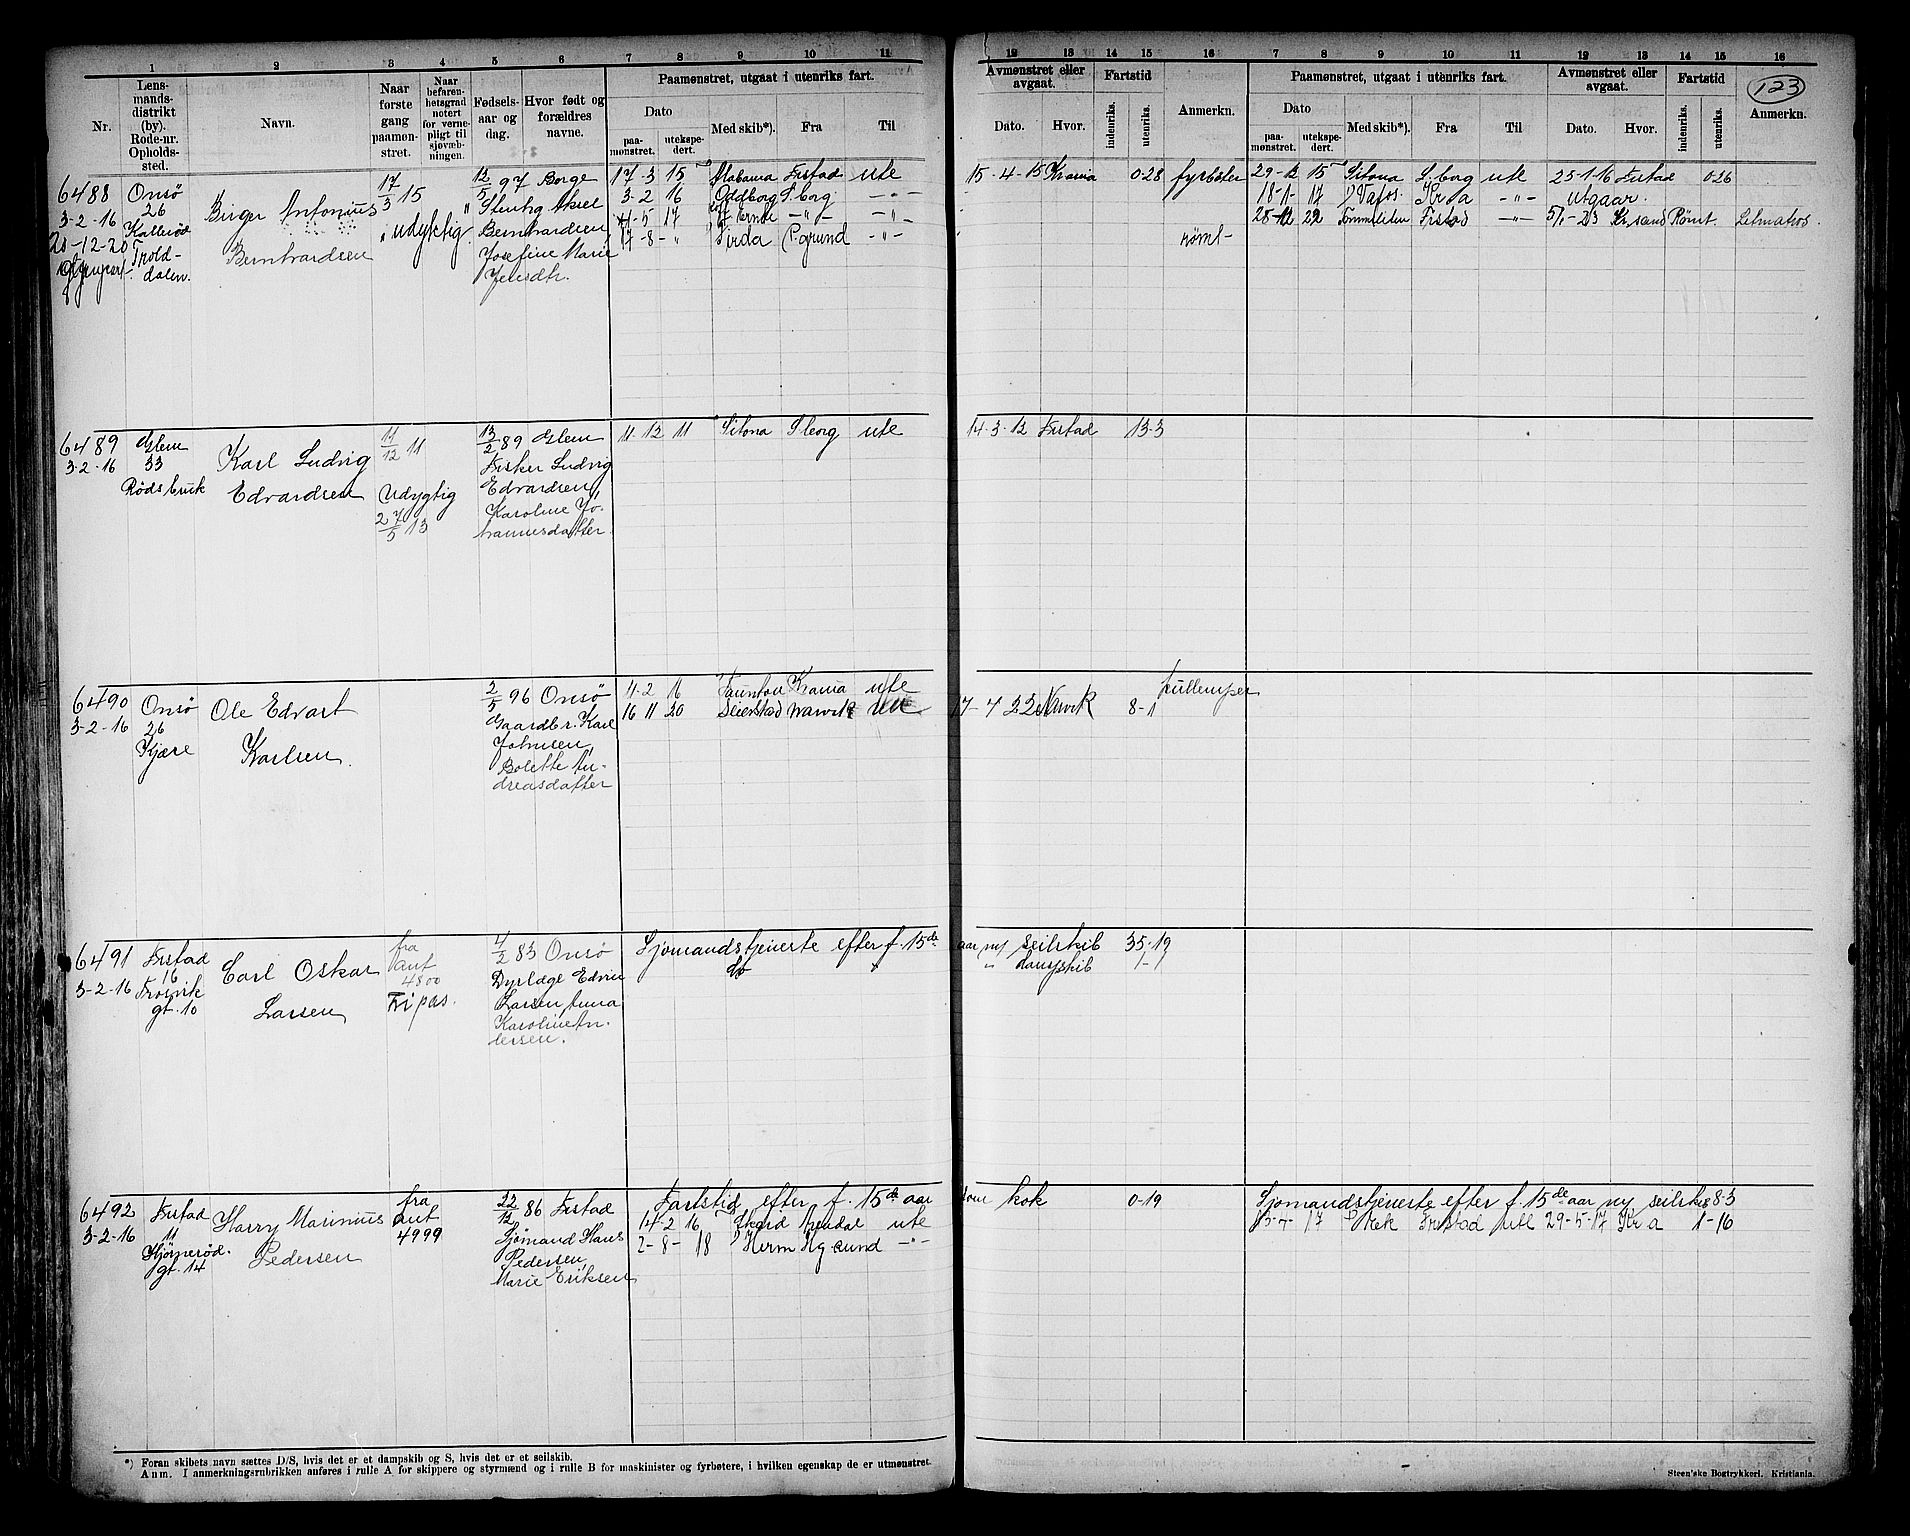 1 2 3 4 5 6 7 8 9 10 11
Lensmandsdistrikt (by). Rode-nr. Opholdssted.
Nr.
Navn.
Naar første gang paamønstret.
Naar befarenhetsgrad notert for vernepligt til sjøvæbningen.
Fødselsaar og dag.
Hvor født og forældres navne.
Paamønstret, utgaat i utenriks fart.
Dato
paamønstret. utekspedert.
Med skib*). Fra Til
12 13 14 15 16 7 8 9 10 11 12 13 14 15 16
Avmønstret eller avgaat. Fartstid
Dato. Hvor. indenriks. utenriks. Anmerkn.
Paamønstret, utgaat i utenriks fart.
Dato
paamønstret. utekspedert. Med skib*). Fra Til
Avmønstret eller avgaat. Fartstid
Dato. Hvor. indenriks. utenriks. Anmerkn.
123
6488 Onsø
3-2-16 26
Kallerød
21-12-20 Trolldalen.
Birger Antonius
Bernhardsen
17/3 15
udyktig
12/5 97 Borge
Stenhg Aksel
Bernhardsen,
Josefine Marie
Jensdtr.
17-3 15 Alabama Frstad ute 15-4-15 Krania 0-28 fyrbøter
3-2 16 Oddborg S.borg -"-
-5 17 -"- -"-
17-8-" Firda P.grund -"- rømt-
29-12 15 Sitona S.borg ute 25-1-16 Frstad 0-26
18-1- 17 Vafos Kr a -"- utgaar.
28-12 22 Tommeliten Frstad -"- 5/1-23 Kr.sand Rømt. Letmatros.
6489 Glem
3-2-16 33
Rødsbruk
Karl Ludvig
Edvardsen
11/12 11
Udygtig
27/5 13
13/2 89 Glem
Fisker Ludvig
Edvardsen,
Karoline Jo-
hannesdatter.
11-12 11 Sitona S.borg ute 14-3-12 Frstad 13-3
6490 Onsø
3-2-16 26
Kjære
Ole Edvart
Karlsen.
2/5 96 Onsø
Gaardbr. Karl
Johnsen,
Bolette An-
dreasdatter
4-2 16 Taunton Krania ute
16 11 20 Seierstad Narvik ute 17-4 22 Narvik 8-1 kullemper
6491 Frstad
3-2-16 16
Trosvik
gt. 10
Carl Oskar
Larsen
fra
ant
4800
Fripas.
4/2 83 Onsø
Dyrlæge Edvin
Larsen, Anna
Karoline An-
dersen.
Sjømandstjeneste efter f. 15de aar m/ seilskib 35-19
do " dampskib 1-9
6492 Frstad
3-2-16 11
Hjørnerød.
gt. 14
Harry Marinius
Pedersen
fra
ant
4999
22/12 86 Frstad
Sjømand Hans
Pedersen,
Marie Eriksen
Fartstid efter f. 15de aar som kok 0-19
14-2 16 Skard ute
2-8- 18 Herm Hg.sund -"-
Sjømandstjeneste efter f. 15de aar m/ seilskib 83
13-4- 17 Frstad ute 29-5-17 Kr a 1-16
*) Foran skibets navn sættes D/S, hvis det er et dampskib og S, hvis det er et seilskib.
Anm. I anmerkningsrubrikken anføres i rulle A for skippere og styrmænd og i rulle B for maskinister og fyrbøtere, i hvilken egenskap de er utmønstret.
Steen'ske Bogtrykkeri. Kristiania.